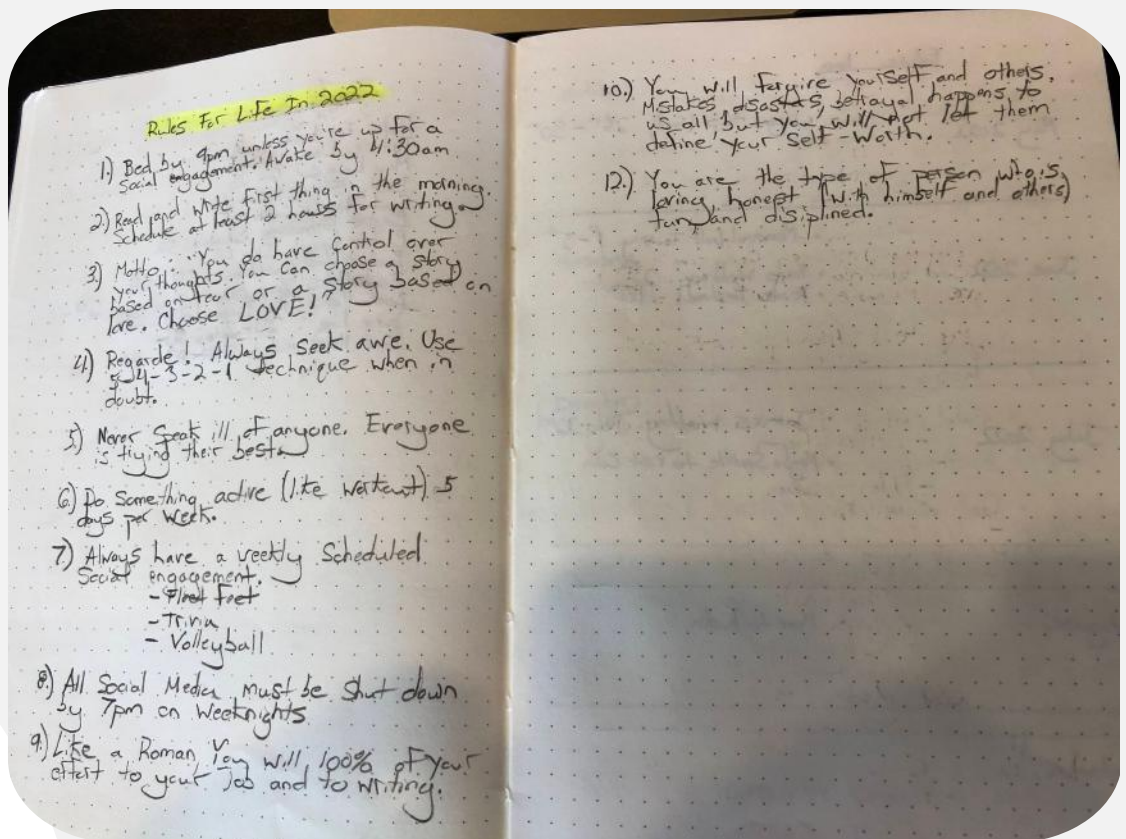 Rules For Life In 2022
1.) Bed by 9pm unless you're up for a
Social engagement. Awake by 4:30am
2.) Read and write first thing in the morning.
Schedule at least 2 hours for writing.
3.) Motto: "You do have control over
your thoughts. You can choose a story
based on fear or a story based on
love. Choose LOVE!"
4.) Regarde! Always seek awe. Use
5-4-3-2-1 technique when in
doubt.
5.) Never speak ill of anyone. Everyone
is trying their best.
6.) Do something active (like workout) 5
days per week.
7.) Always have a weekly scheduled
Social engagement.
- Fleet Feet
- Trivia
- Volleyball
8.) All Social Media must be shut down
by 7pm on weeknights
9.) Like a Roman, You will 100% of your
effort to your Job and to writing.
10.) You will forgive yourself and others.
Mistakes, disasters, betrayal happens to
us all, but you will not let them
define your Self-Worth.
12.) You are the type of person who is
loving, honest (with himself and others)
and disiplined.